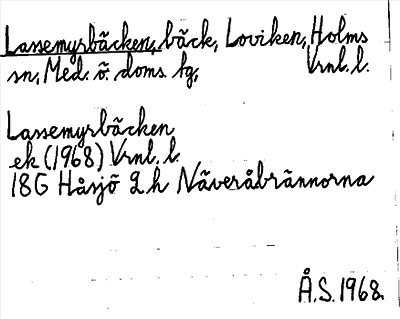 Lassemyrbäcken, bäck, Loviken, Holms
sn, Med. ö. doms. tg, Vrnl. l.
Lassemyrbäcken
ek (1968) Vrnl. l.
18G Håsjö 2h Näveråbrännorna
Å.S. 1968.